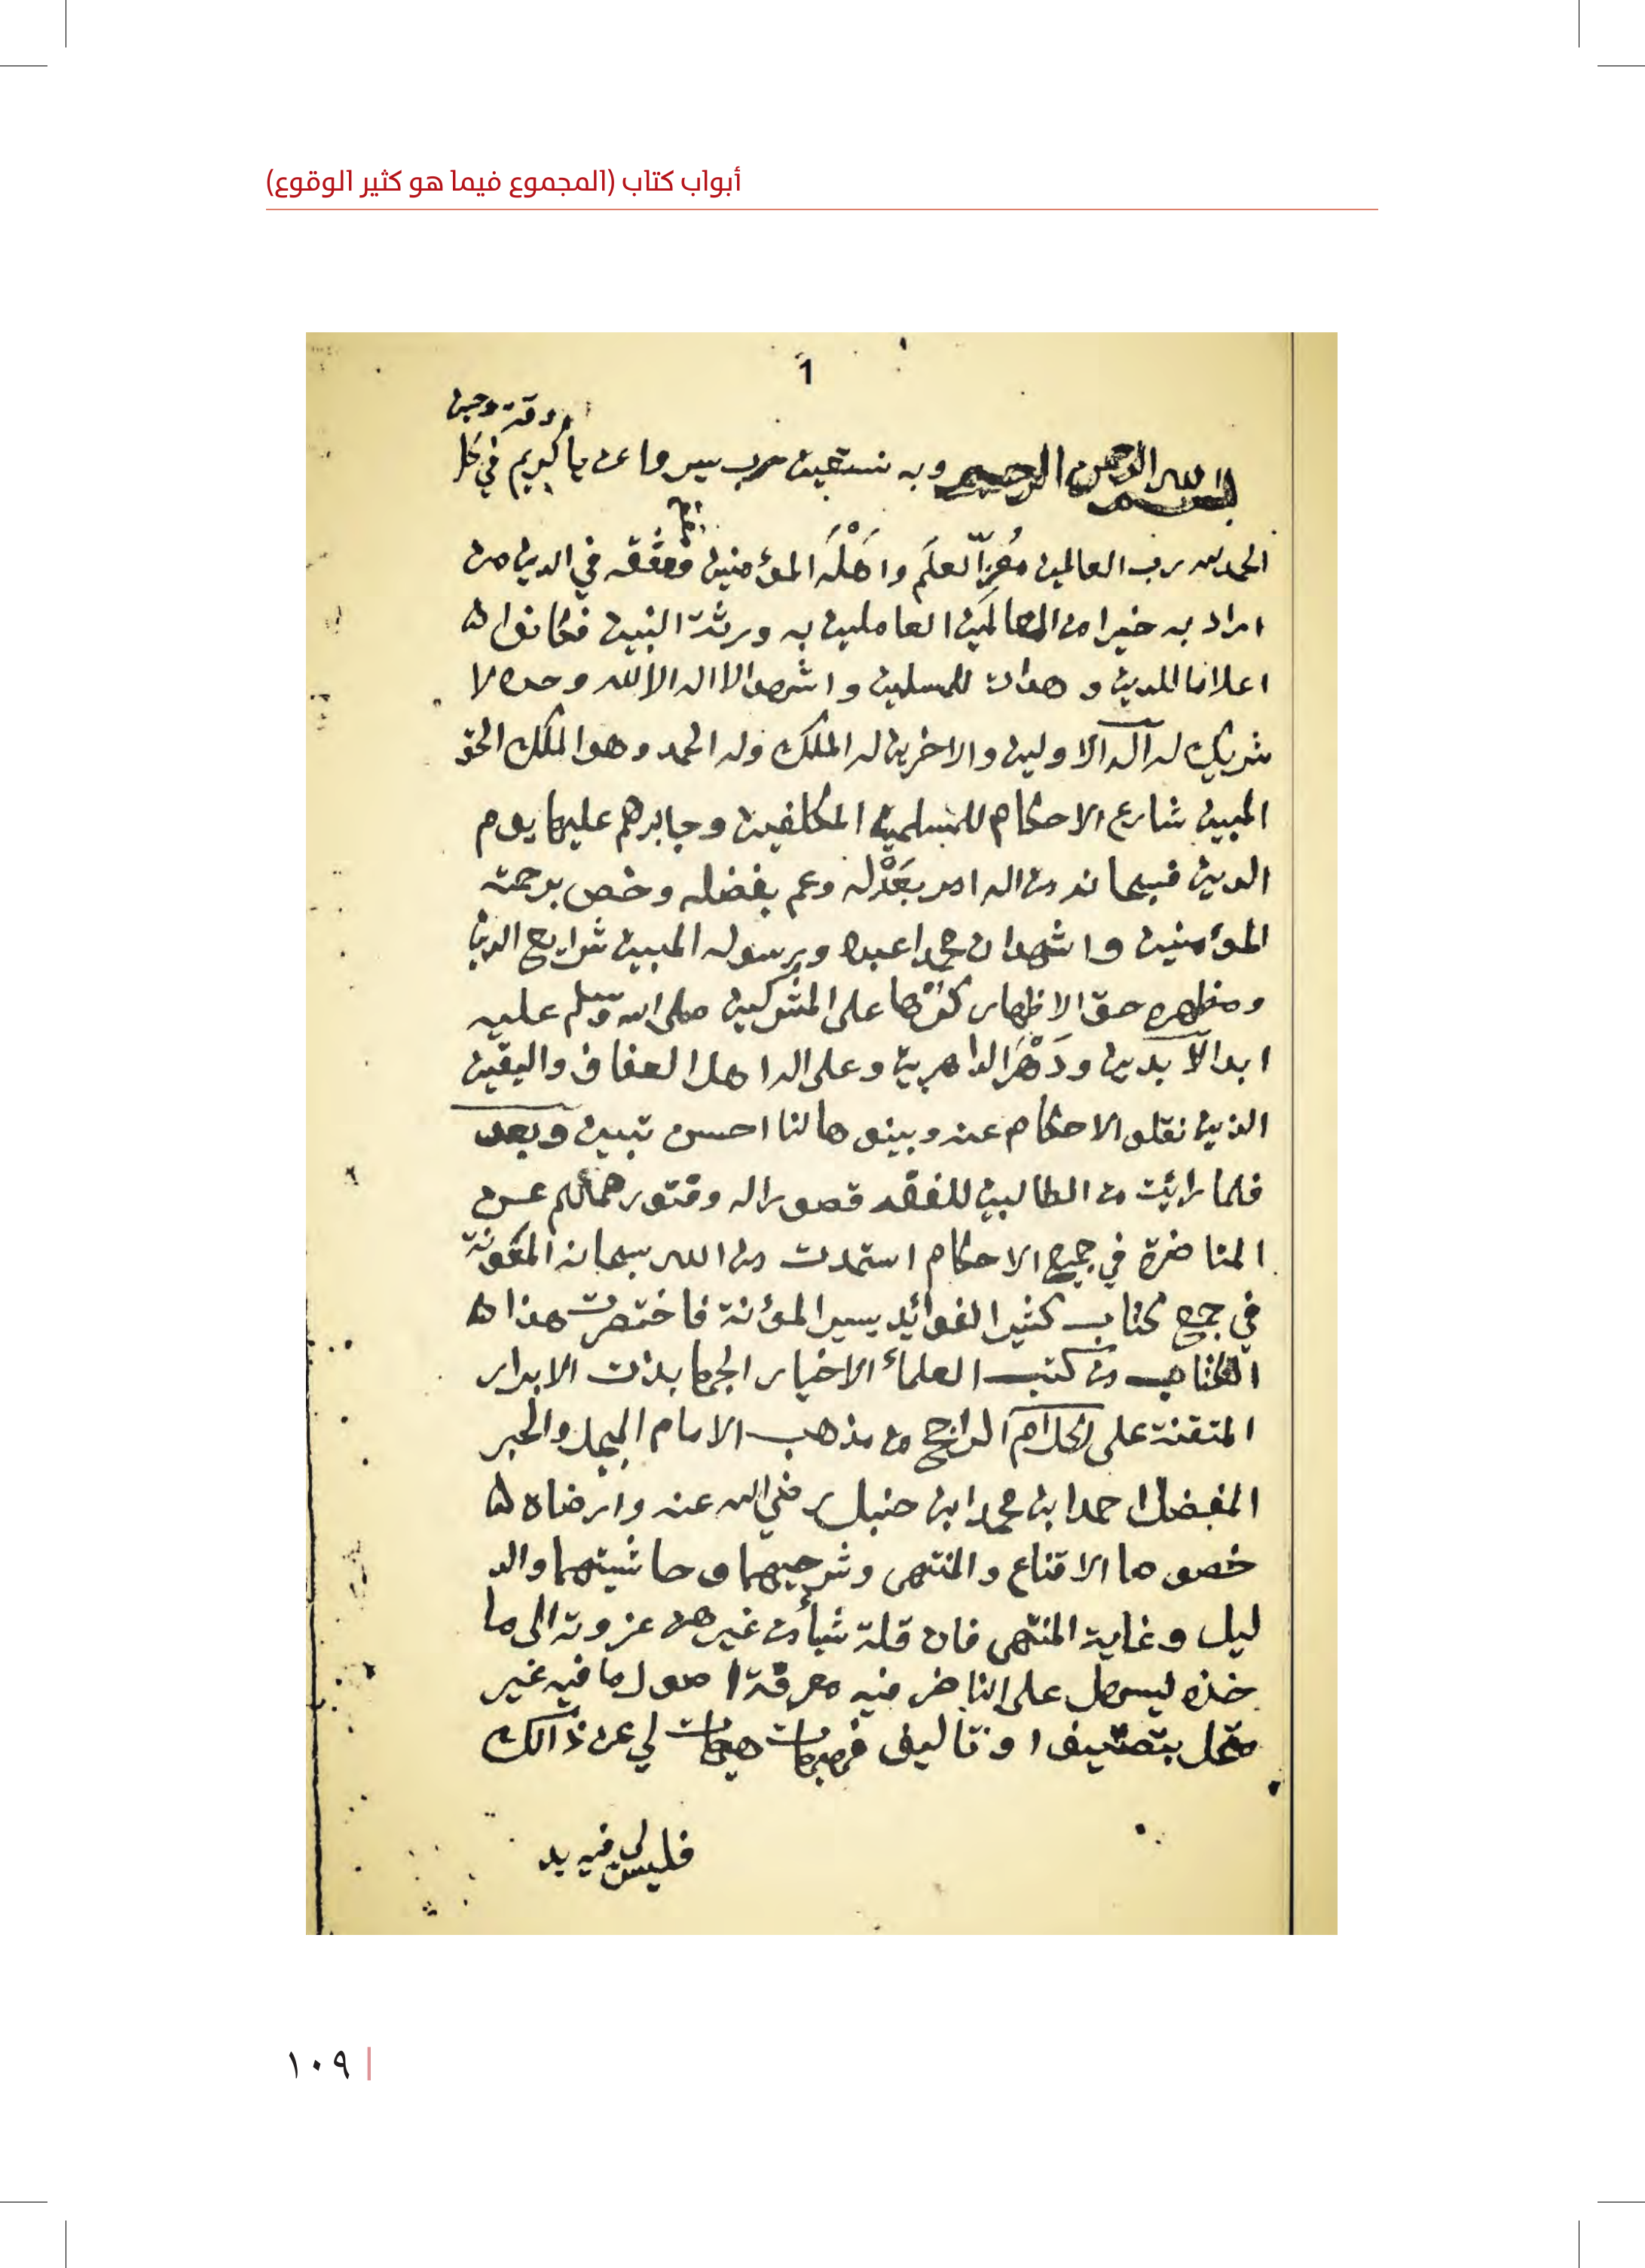 أبواب كتاب (المجموع فيما هو كثير الوقوع)
1
وقت وحين
بسم الله الرحمن الرحيم وبه نستعين رب يسر واعن يا كريم في كل
الحمد لله رب العالمين مُعِزّ العلم واهْلَه المؤمنين ففقه في الدين من
اراد به خيرا من العالمين العاملين به ورثة النبين فكانوا
اعلاما للدين و هدات للمسلين واشهد الا اله الا الله وحده لا
شريك له اله الاولين والاخرين له الملك وله الحمد وهو الملك الحق
المبين شارع الاحكام للمسلمين المكلفين وجابرهم عليها يوم
الدين فسبحانه من اله امر بعَدْله وعم بفضله وخص برحمته
المؤمنين واشهد ان محمدا عبده ورسوله المبين شرايع الدين
ومظهره حق الاظهار كرها على المشركين صلى الله وسلم عليه
ابد الآبدين ودَهْرَ الداهرين وعلى اله اهل العفاف واليقين
الذين نقلو الاحكام عنه وبينوها لنا احسن تبين وبعد
فلما رائيت من الطالبين للفقه قصورا له وفتور هممهم عن
المناضرة في جميع الاحكام استمدت من الله سبحانه المعونة
في جمع كتاب كثير الفوائد يسير المؤنة فاختصرت هذا
الكتاب من كتب العلماء الاخيار الجهابذت الابرار
المتقنة على الكلام الراجح من مذهب الامام المبجل والحبر
المفضل احمد ابن محمد ابن حنبل رضي الله عنه وارضاه
خصوصا الاقناع والمنتهى وشرحيهما وحاشيتهما والد
ليل وغاية المنتهى فان قلة شيأ من غيرهن عزوته الى ما
خذه ليسهل على الناضر فيه معرفة اصول ما فيه غير
بتصنيف او تاليف فهيهات هيهات لي عن ذالك
فليس لي فيه يد
١٠٩